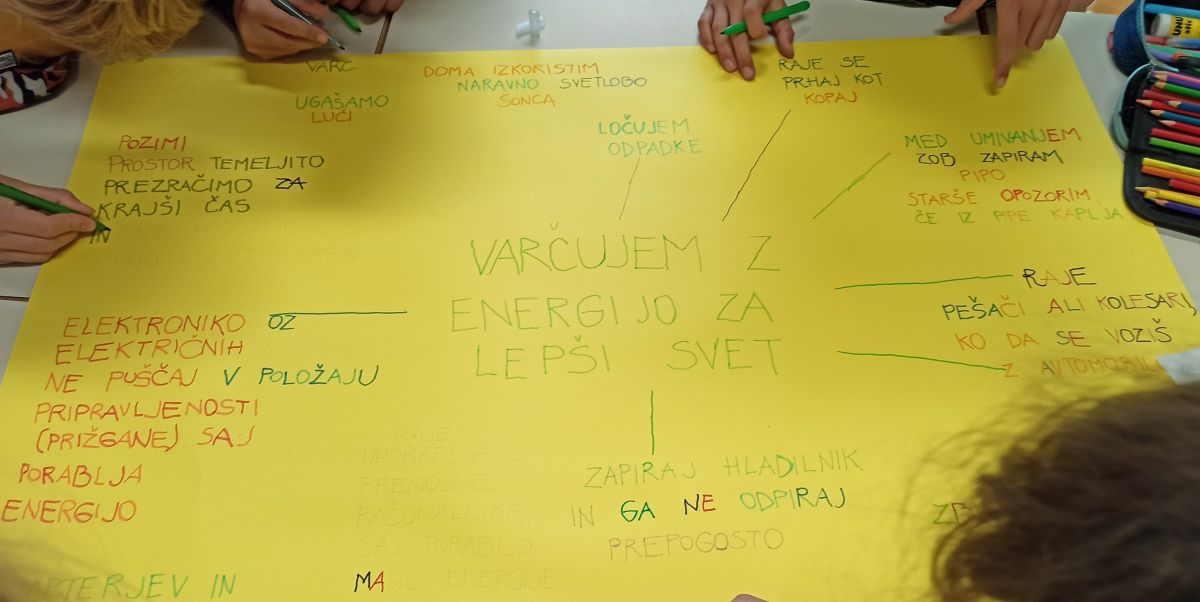 VARČ
DOMA IZKORISTIM
NARAVNO SVETLOBO
SONCA
RAJE SE
PRHAJ KOT
KOPAJ
UGAŠAMO
LUČI
LOČUJEM
ODPADKE
POZIMI
PROSTOR TEMELJITO
PREZRAČIMO ZA
KRAJŠI ČAS
IN NE
ODPRTIH OKEN.
MED UMIVANJEM
ZOB ZAPIRAM
PIPO
STARŠE OPOZORIM,
ČE IZ PIPE KAPLJA
VARČUJEM Z
ENERGIJO ZA
LEPŠI SVET
RAJE
PEŠAČI ALI KOLESARI,
KO DA SE VOZIŠ
Z AVTOMOBIL
ELEKTRONIKO OZ
ELEKTRIČNIH NAPRAV
NE PUŠČAJ V POLOŽAJU
PRIPRAVLJENOSTI
(PRIŽGANE) SAJ
PORABLJA
ENERGIJO
RAJE
UPORABLJAMO
PRENOSNE
RAČUNALNIKE,
SAJ PORABIJO
MANJ ENERGIJE
ZAPIRAJ HLADILNIK
IN GA NE ODPIRAJ
PREPOGOSTO
TERJEV IN